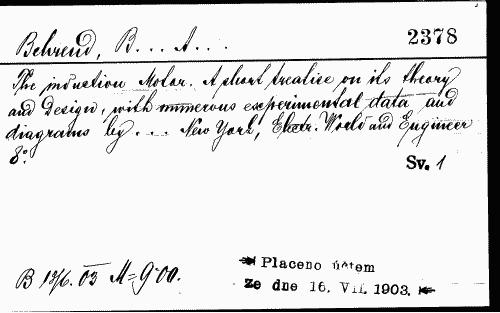 Behrend, B... A....
2378
The induction Motor. A short treatise on its theory
and Design, with numerous experimental data and
diagrams by ... New York, Electr. World and Engineer
8°.
Sv. 1
B 13/6. 03 M= 9·00.
Placeno účtem
Ze dne 16. VII. 1903.